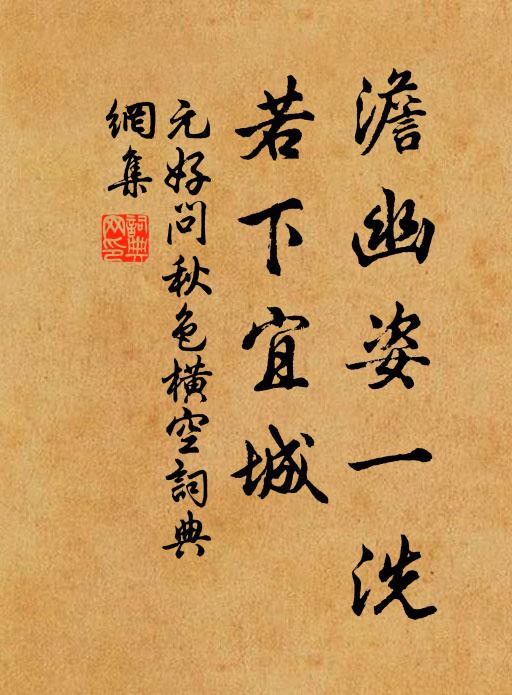 澹幽姿一洗
若下宜城
元好问秋色橫空詞典
網集
詞典
网印